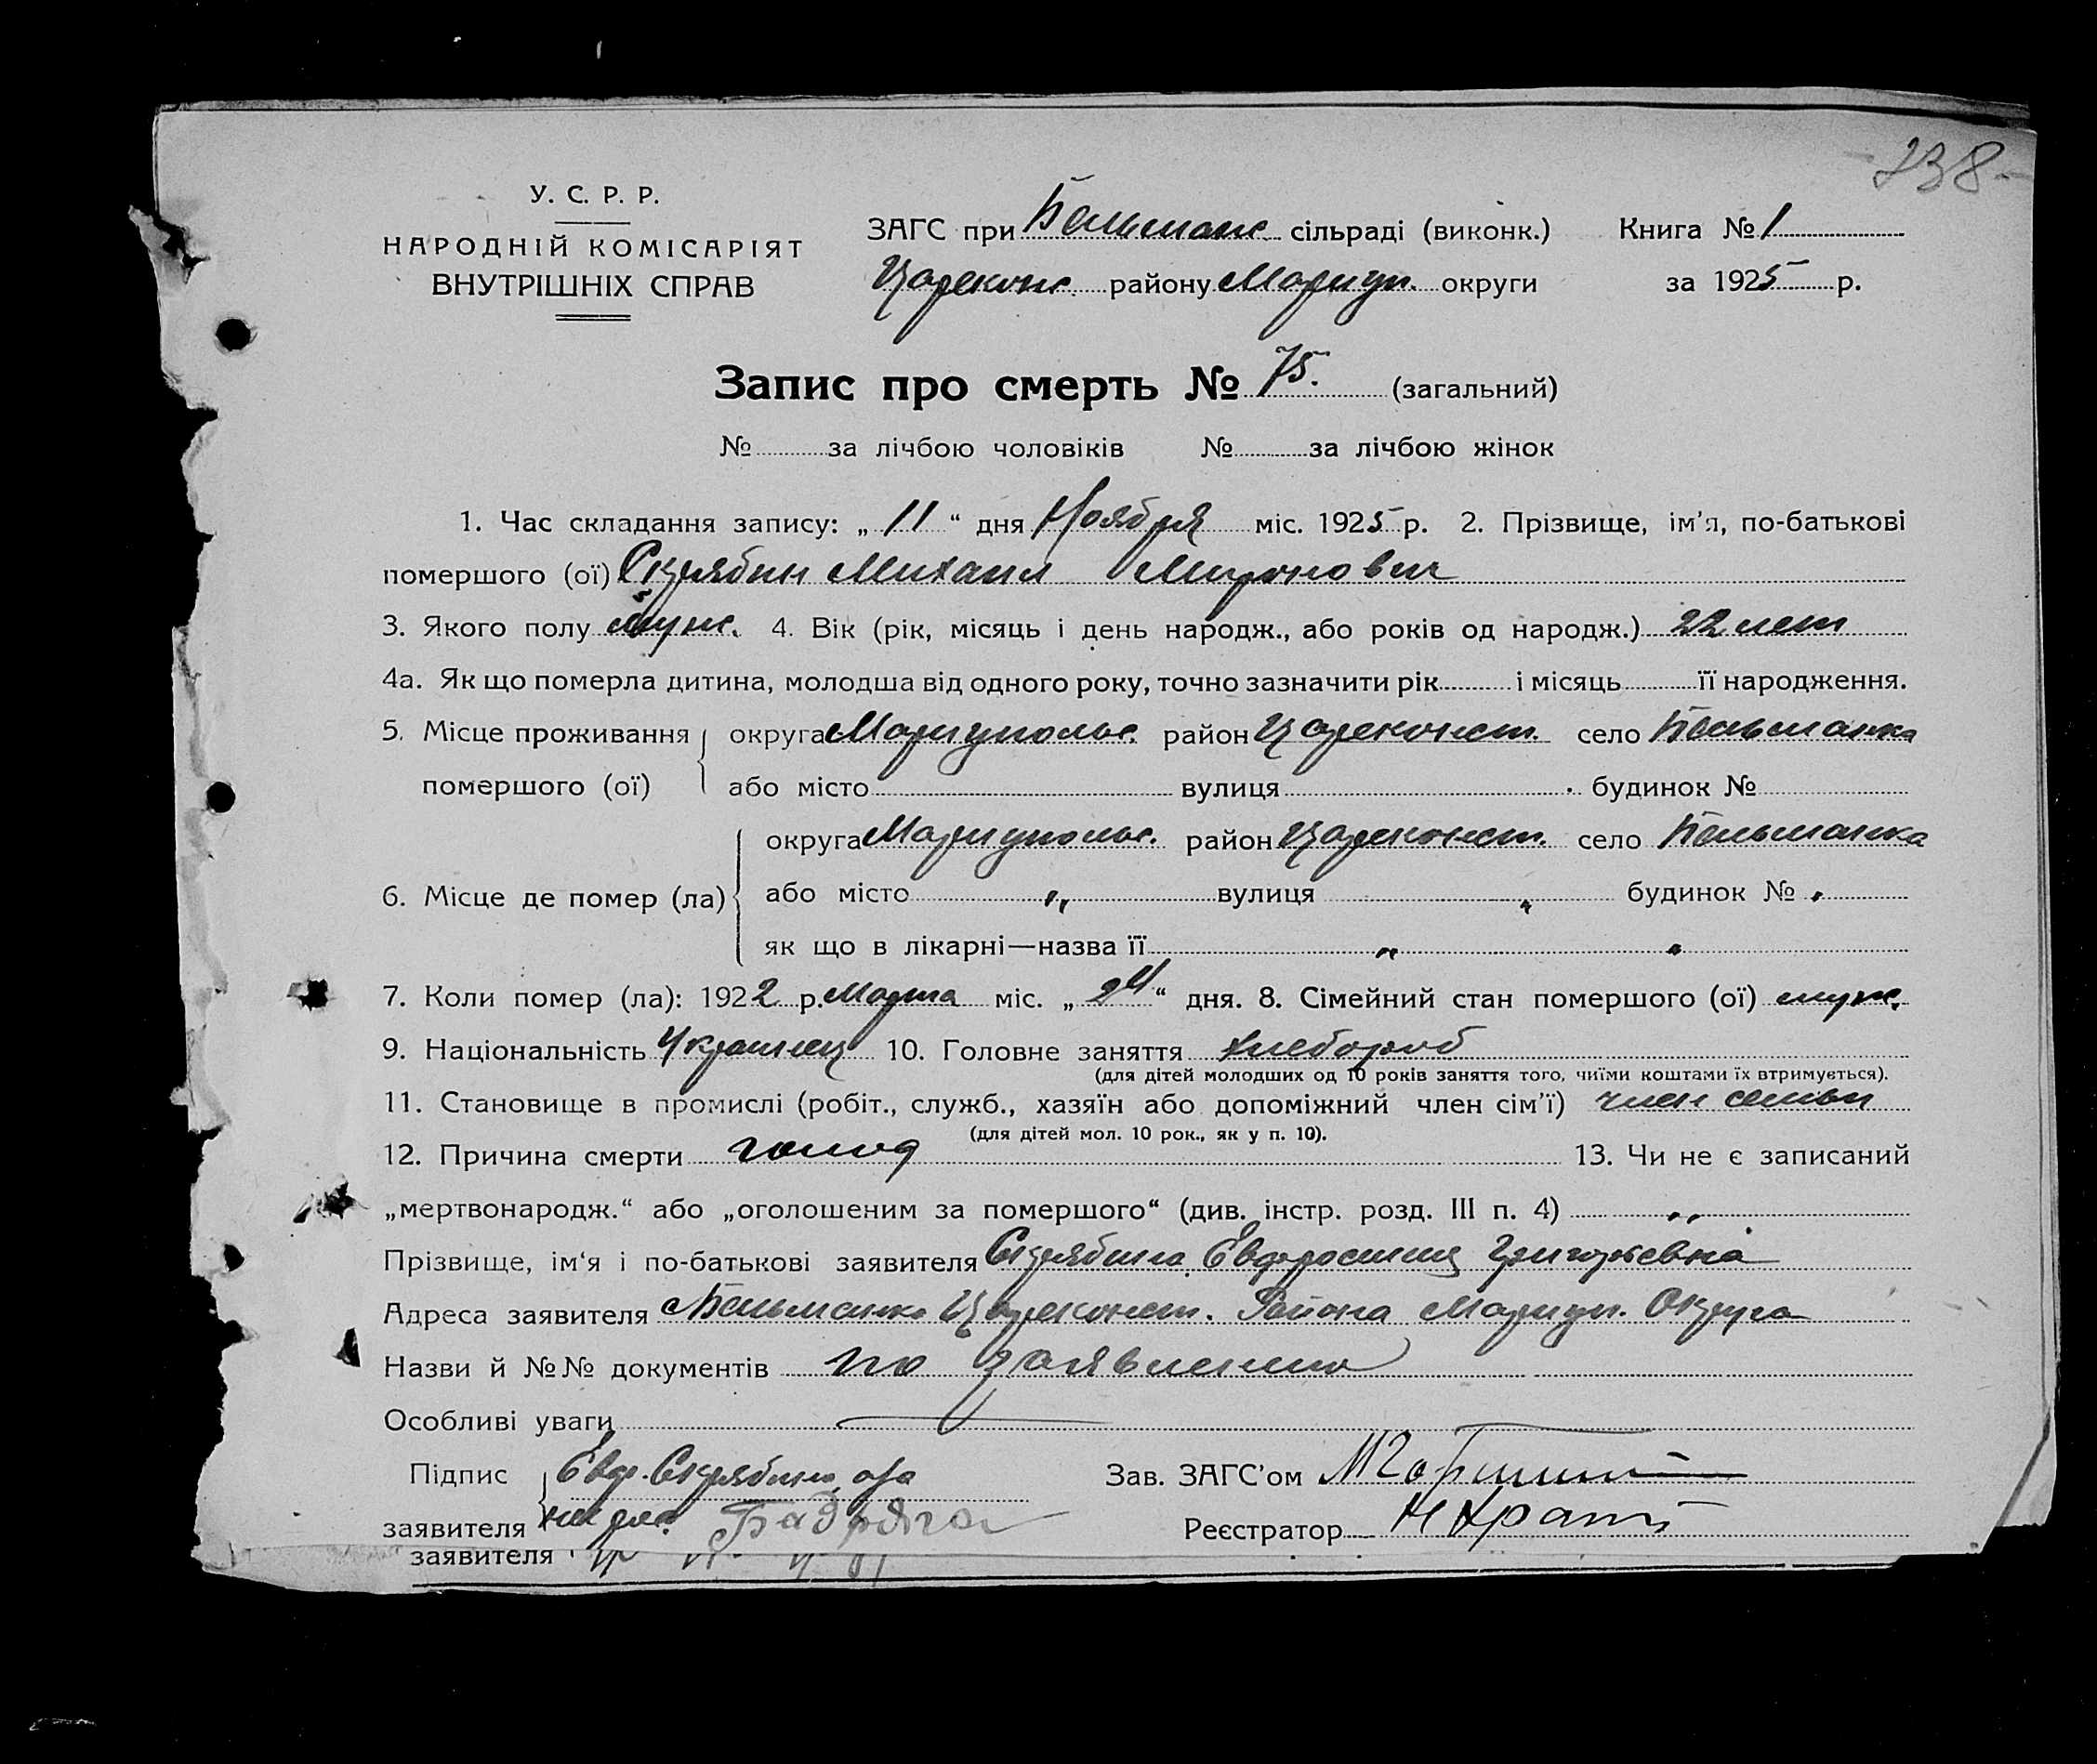 238-
У. С. Р. Р.
НАРОДНІЙ КОМІСАРІЯТ
ВНУТРІШНІХ СПРАВ
ЗАГС при Бельманс. сільраді (виконк.) Книга № 1
Цареконс. району Мариуп. округи за 1925 р.
Запис про смерть № 75. (загальний)
№ за лічбою чоловіків № за лічбою жінок
1. Час складання запису: „ 11 “ дня Ноября міс. 1925 р. 2. Прізвище, ім'я, по-батькові
помершого (ої) Скрябин Михаил Миронович
3. Якого полу муж. 4. Вік (рік, місяць і день народж., або років од народж.) 22 лет
4а. Як що померла дитина, молодша від одного року, точно зазначити рік і місяць її народження.
5. Місце проживання округа Мариупольс. район Цареконст. село Бельманка
помершого (ої) або місто вулиця будинок №
округа Мариупольс. район Цареконст. село Бельманка
6. Місце де помер (ла) або місто „ вулиця „ будинок № „
як що в лікарні—назва її „ „
7. Коли помер (ла): 1922 р. Марта міс. „ 24 “ дня. 8. Сімейний стан помершого (ої)
9. Національність Украинец 10. Головне заняття хлебороб
(для дітей молодших од 10 років заняття того, чиїми коштами їх втримується).
11. Становище в промислі (робіт., служб., хазяїн або допоміжний член сім'ї) член семьи
(для дітей мол. 10 рок., як у п. 10).
12. Причина смерти голод 13. Чи не є записаний
„мертвонародж.“ або „оголошеним за помершого“ (див. інстр. розд. III п. 4) „
Прізвище, ім'я і по-батькові заявителя Скрябина Евфросиния Григорьевна
Адреса заявителя Бельманка Цареконст. Района Мариуп. Округа
Назви й №№ документів по заявлению
Особливі уваги
Підпис Евф. Скрябина, а за Зав. ЗАГС'ом
заявителя Бадряга Реєстратор
заявителя